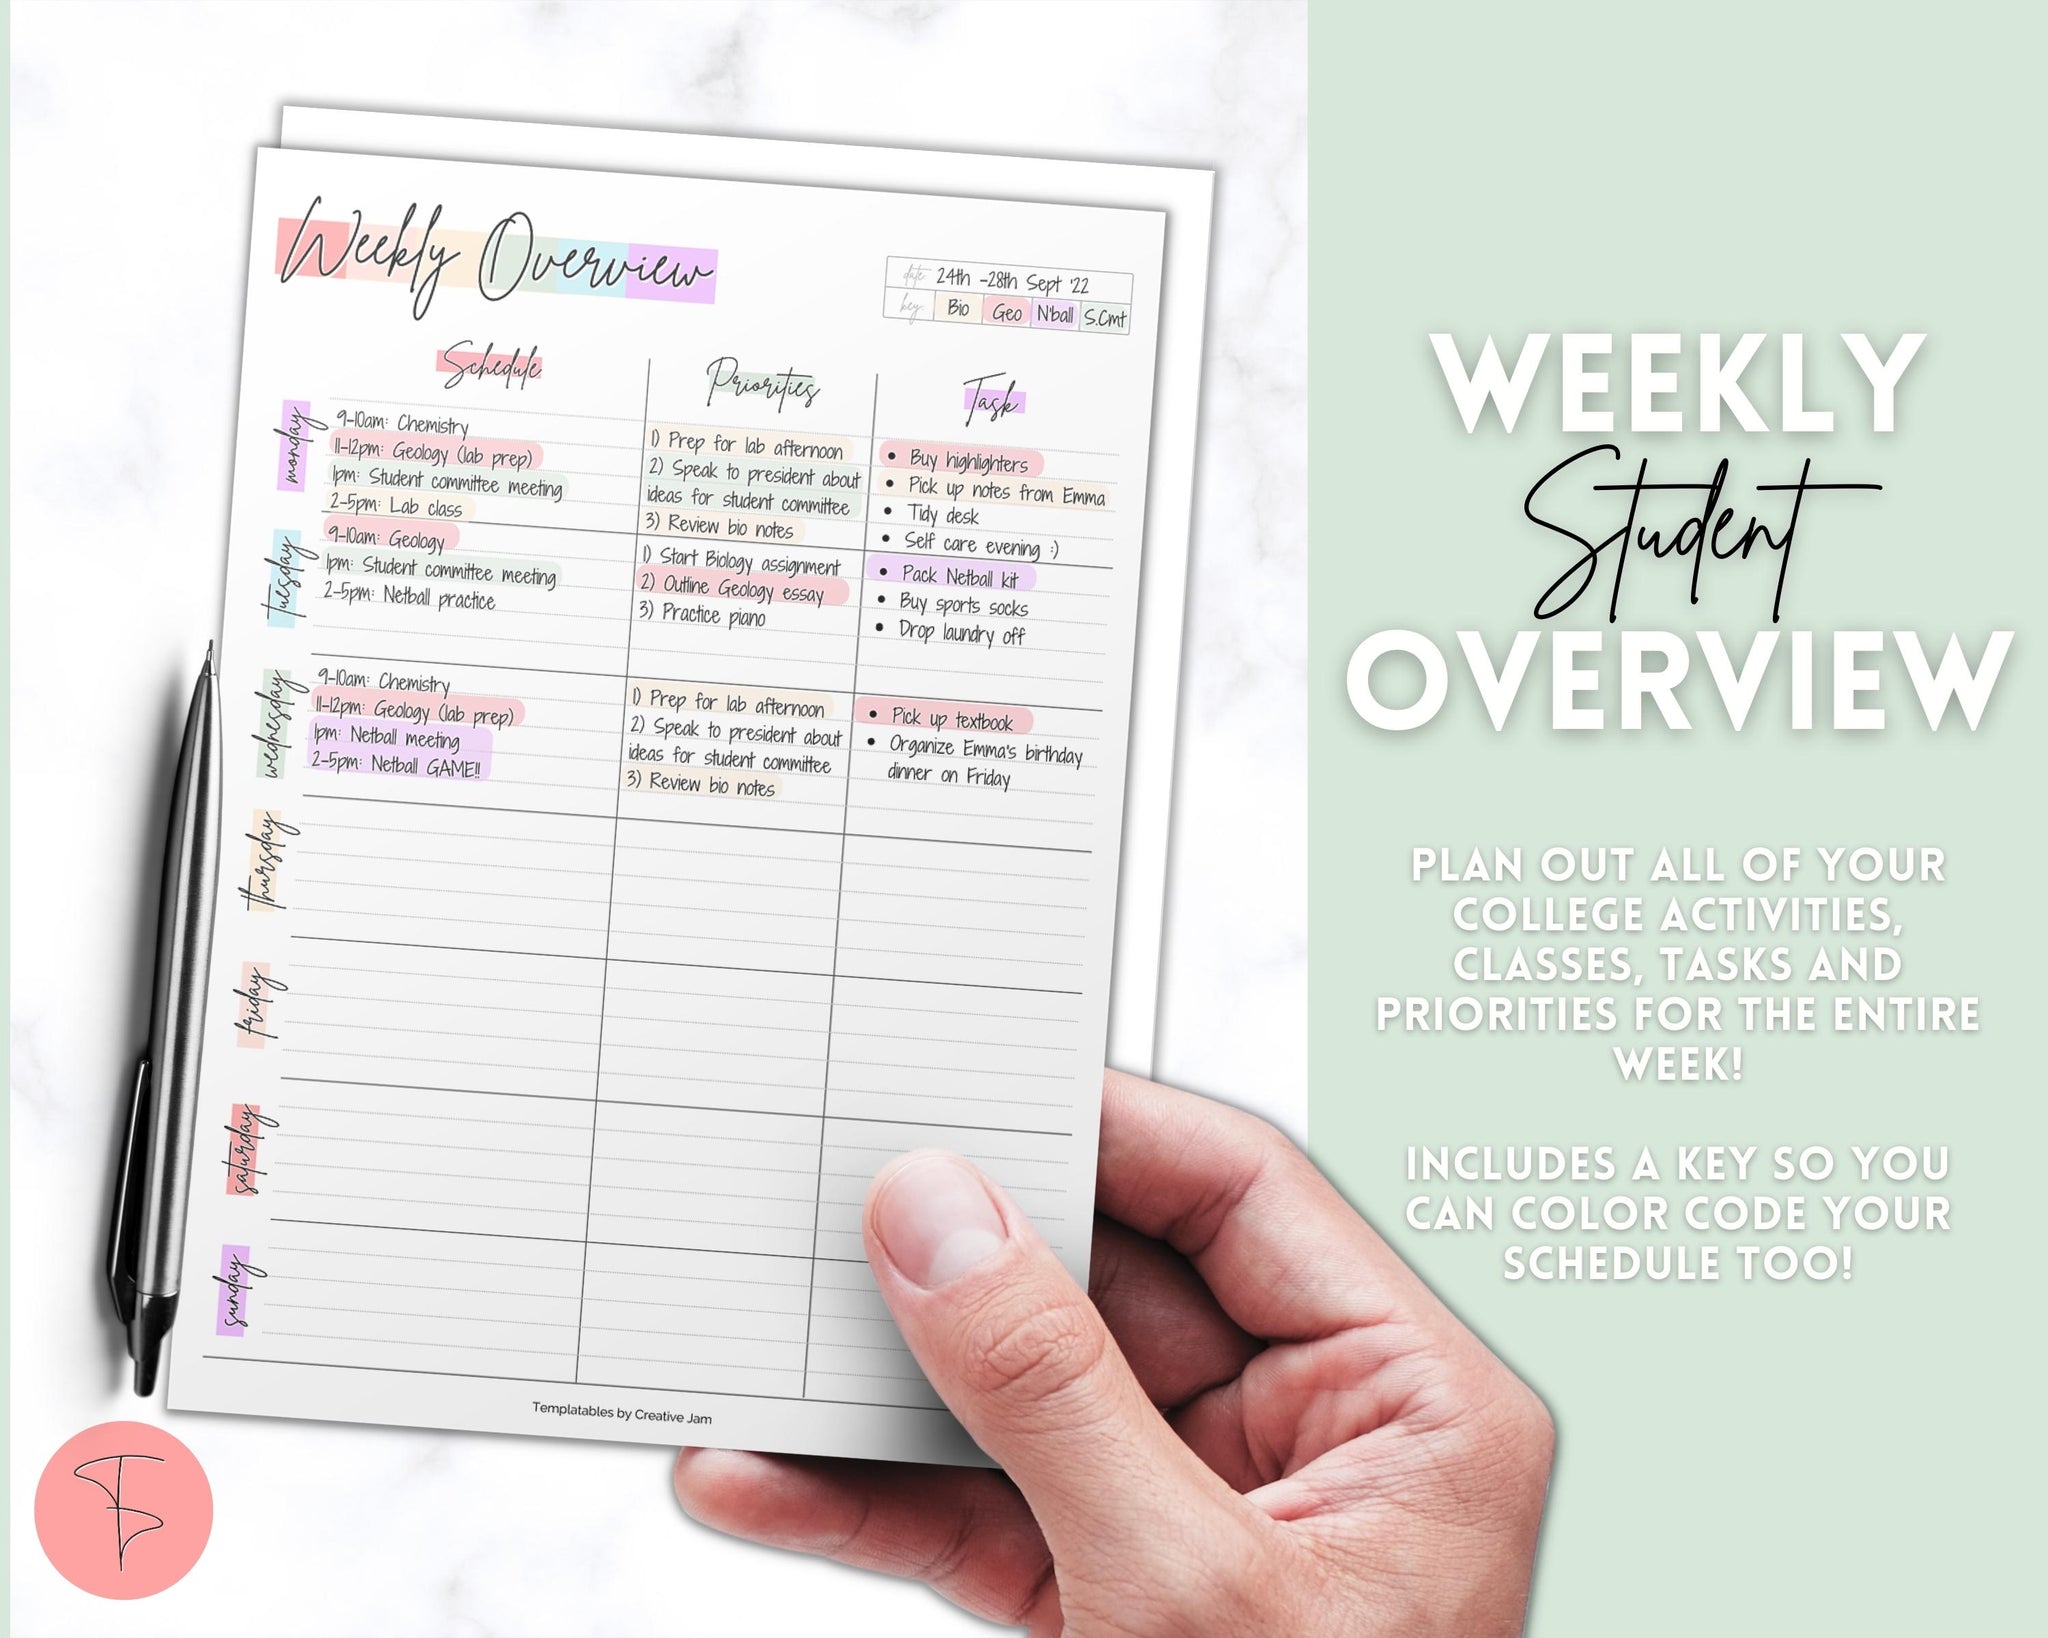 Weekly Overview
date: 24th -28th Sept '22
key: Bio Geo N'ball S.Cmt
Schedule
Priorities
Task
monday
9-10am: Chemistry
11-12pm: Geology (lab prep)
1pm: Student committee meeting
2-5pm: Lab class
1) Prep for lab afternoon
2) Speak to president about
ideas for student committee
3) Review bio notes
• Buy highlighters
• Pick up notes from Emma
• Tidy desk
• Self care evening :)
tuesday
9-10am: Geology
1pm: Student committee meeting
2-5pm: Netball practice
1) Start Biology assignment
2) Outline Geology essay
3) Practice piano
• Pack Netball kit
• Buy sports socks
• Drop laundry off
wednesday
9-10am: Chemistry
11-12pm: Geology (lab prep)
1pm: Netball meeting
2-5pm: Netball GAME!!
1) Prep for lab afternoon
2) Speak to president about
ideas for student committee
3) Review bio notes
• Pick up textbook
• Organize Emma's birthday
dinner on Friday
thursday
friday
saturday
sunday
Templatables by Creative Jam
WEEKLY
Student
OVERVIEW
PLAN OUT ALL OF YOUR
COLLEGE ACTIVITIES,
CLASSES, TASKS AND
PRIORITIES FOR THE ENTIRE
WEEK!
INCLUDES A KEY SO YOU
CAN COLOR CODE YOUR
SCHEDULE TOO!